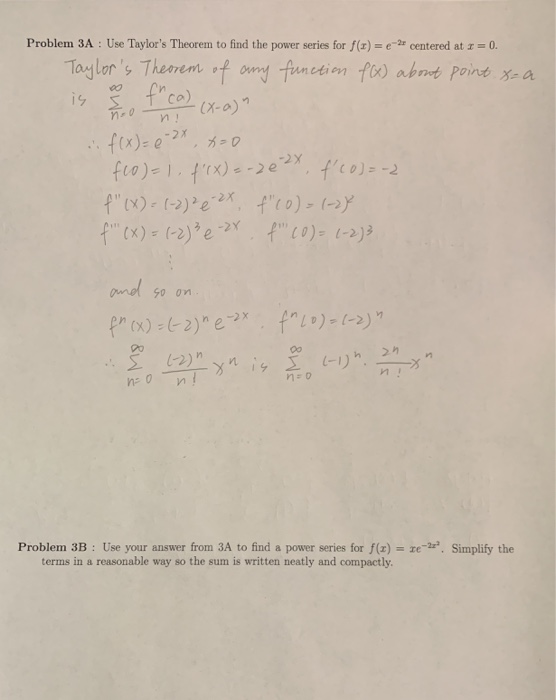 Problem 3A : Use Taylor's Theorem to find the power series for f(x) = e^{-2x} centered at x = 0.
Taylor's Theorem of any function f(x) about point x=a
is ∞Σn=0 fⁿ(a)/n! (x-a)ⁿ
∴ f(x)=e^{-2x}, x=0
f(0)=1. f'(x)=-2e^{-2x}, f'(0)=-2
f''(x)=(-2)²e^{-2x}, f''(0)=(-2)²
f'''(x)=(-2)³e^{-2x}. f'''(0)=(-2)³
⋮
and so on.
fⁿ(x)=(-2)ⁿe^{-2x}. fⁿ(0)=(-2)ⁿ
∴ ∞Σn=0 (-2)ⁿ/n! xⁿ is ∞Σn=0 (-1)ⁿ. 2ⁿ/n! xⁿ
Problem 3B : Use your answer from 3A to find a power series for f(x) = xe^{-2x²}. Simplify the
terms in a reasonable way so the sum is written neatly and compactly.